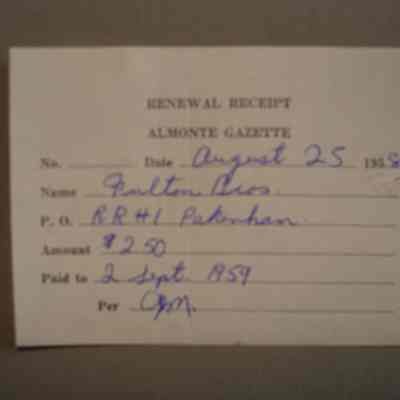 RENEWAL RECEIPT
ALMONTE GAZETTE
No. Date August 25 1958
Name Fulton Bros.
P. O. RR#1 Pakenham
Amount $2.50
Paid to 2 Sept. 1959
Per